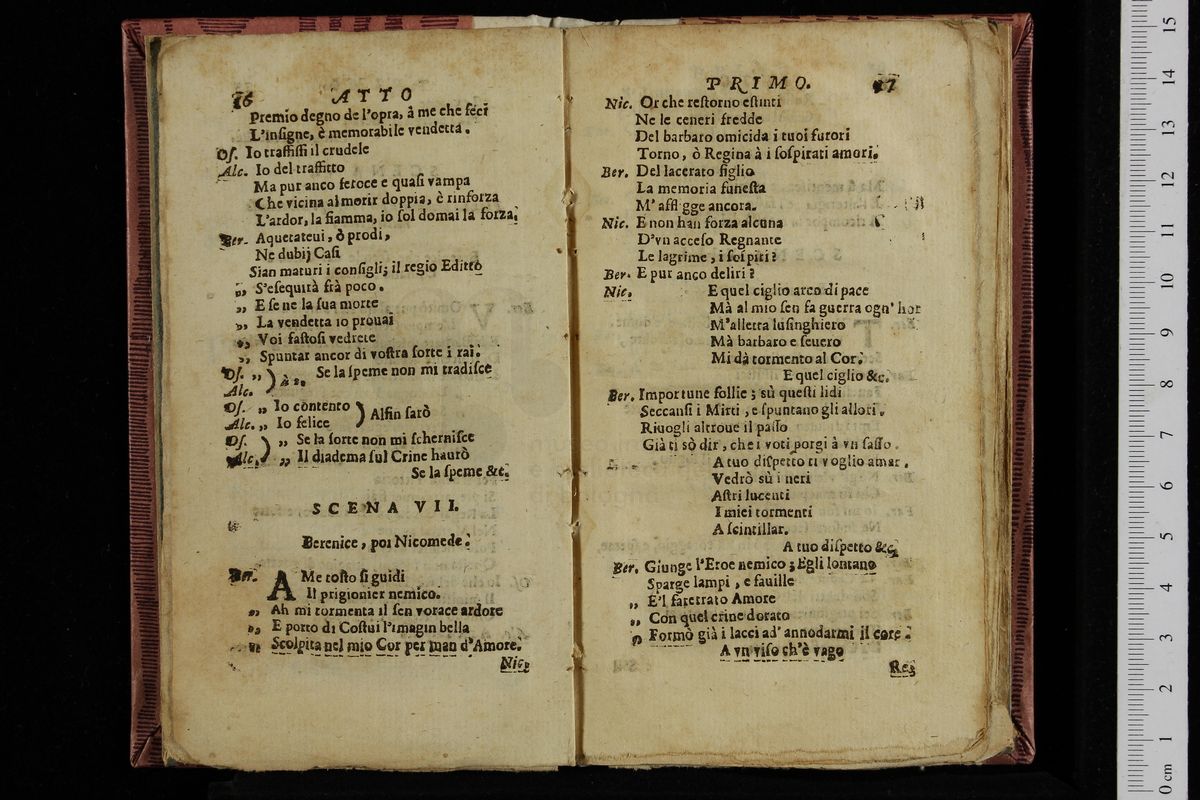 16 ATTO
Premio degno de l'opra, â me che feci
L'insigne, è memorabile vendetta.
Os. Io traffissi il crudele
Alc. Io del traffitto
Ma pur anco feroce e quasi vampa
Che vicina al morir doppia, è rinforza
L'ardor, la fiamma, io sol domai la forza.
Ber. Aquetateui, ò prodi,
Ne dubij Casi
Sian maturi i consigli; il regio Editto
„ S'esequirà frà poco.
„ E se ne la sua morte
„ La vendetta io prouai
„ Voi fastosi vedrete
„ Spuntar ancor di vostra sorte i rai.
Os. „ ) à 2. Se la speme non mi tradisce
Alc.
Os. „ Io contento ) Alfin sarò
Alc. „ Io felice
Os. ) „ Se la sorte non mi schernisce
Alc. „ Il diadema sul Crine haurò
Se la speme &c.
SCENA VII.
Berenice, poi Nicomede.
Ber. A Me tosto si guidi
Il prigionier nemico.
„ Ah mi tormenta il sen vorace ardore
„ E porto di Costui l'imagin bella
„ Scolpita nel mio Cor per man d'Amore.
Nic.
PRIMO. 17
Nic. Or che restorno estinti
Ne le ceneri fredde
Del barbaro omicida i tuoi furori
Torno, ò Regina à i sospirati amori.
Ber. Del lacerato figlio
La memoria funesta
M'affligge ancora.
Nic. E non han forza alcuna
D'vn acceso Regnante
Le lagrime, i sospiri?
Ber. E pur anco deliri?
Nic. E quel ciglio arco di pace
Mà al mio sen fa guerra ogn' hor
M'alletta lusinghiero
Mà barbaro e seuero
Mi dà tormento al Cor.
E quel ciglio &c.
Ber. Importune follie; sù questi lidi
Seccansi i Mirti, e spuntano gli allori.
Riuogli altroue il passo
Già ti sò dir, che i voti porgi à vn sasso.
A tuo dispetto ti voglio amar.
Vedrò sù i neri
Astri lucenti
I miei tormenti
A scintillar.
A tuo dispetto &c.
Ber. Giunge l'Eroe nemico; Egli lontano
Sparge lampi, e fauille
„ E'l faretrato Amore
„ Con quel crine dorato
„ Formò già i lacci ad' annodarmi il core.
A vn viso ch'è vago
Re;
0 cm 1 2 3 4 5 6 7 8 9 10 11 12 13 14 15